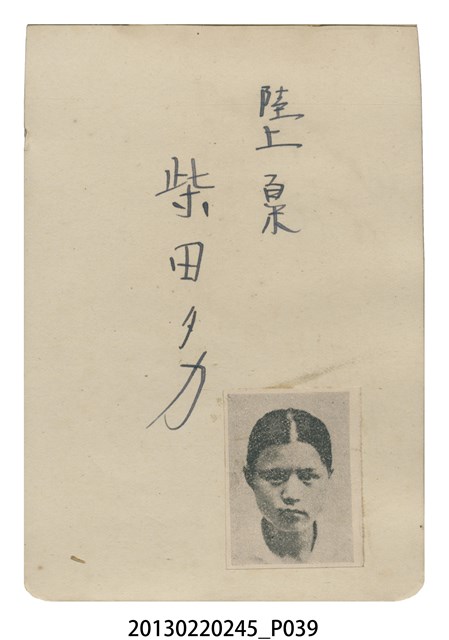 陸上
柴田タカ
20130220245_P039